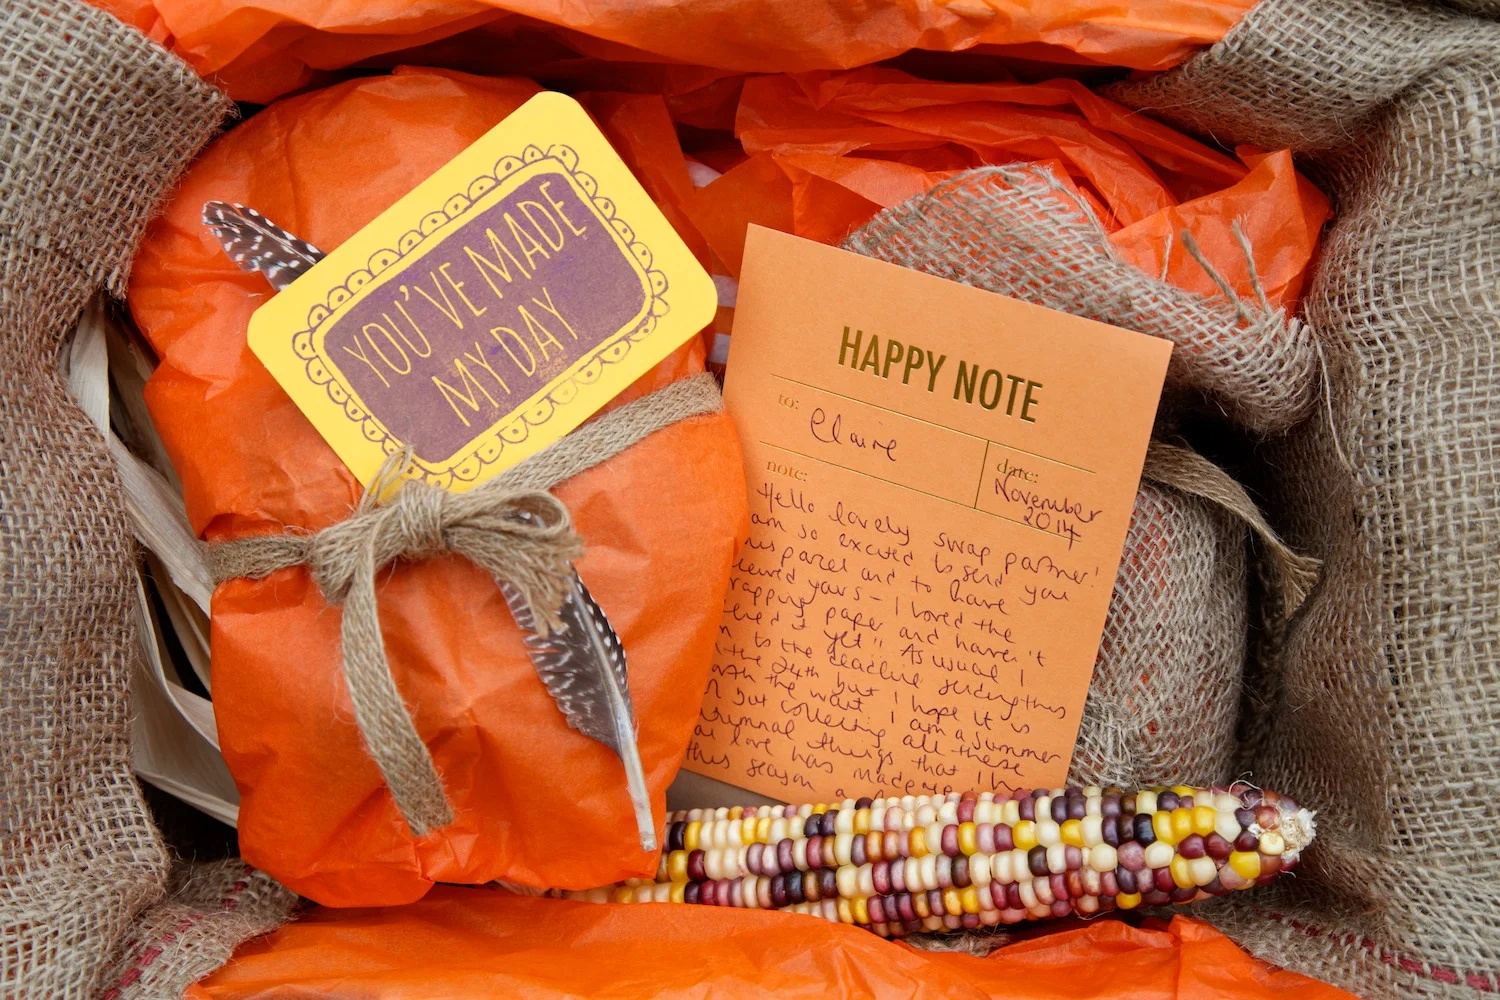 YOU'VE MADE
MY DAY
HAPPY NOTE
to:
Claire
date:
November
2014
note:
Hello lovely swap partner!
am so excited to send you
parcel and to have
yours - I loved the
paper and haven't
it yet!! As usual I
to the deadline sending this
the 24th but I hope it is
the wait. I am a summer
but collecting all these
things that I
love has made me
this season a